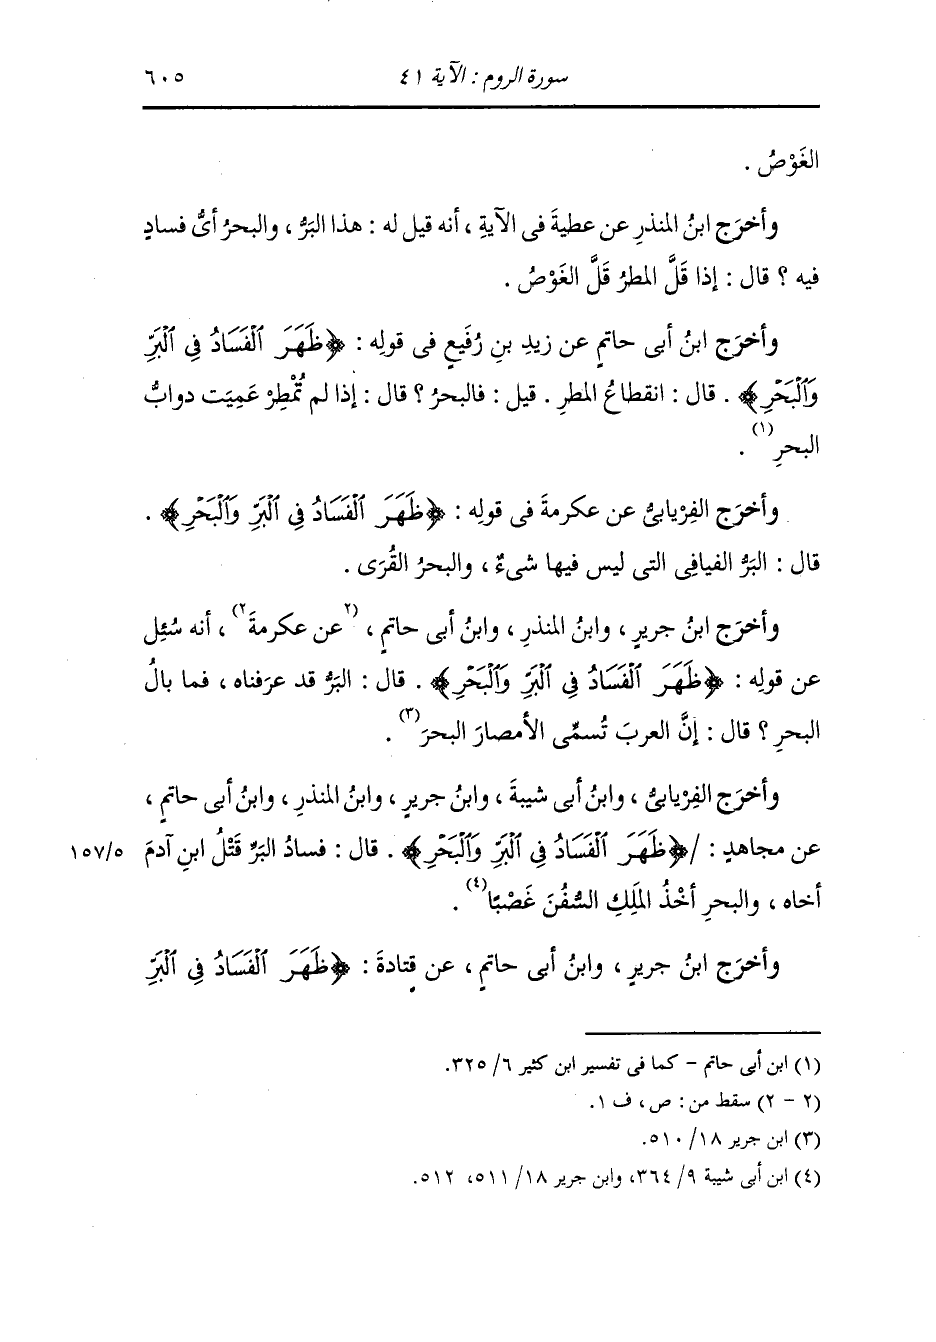 سورة الروم : الآية ٤١ ٦٠٥
الغَوْصُ .
وأخرَج ابنُ المنذرِ عن عطيةَ فى الآيةِ ، أنه قيل له : هذا البَرُّ ، والبحرُ أىُّ فسادٍ
فيه ؟ قال : إذا قَلَّ المطرُ قَلَّ الغَوْصُ .
وأخرَج ابنُ أبى حاتمٍ عن زيدِ بنِ رُفَيعٍ فى قولِه : ﴿ظَهَرَ ٱلْفَسَادُ فِى ٱلْبَرِّ
وَٱلْبَحْرِ﴾ . قال : انقطاعُ المطرِ . قيل : فالبحرُ ؟ قال : إذا لم تُمْطِرْ عَمِيَت دوابُّ
البحرِ(١) .
وأخرَج الفِرْيابىُّ عن عكرمةَ فى قولِه : ﴿ظَهَرَ ٱلْفَسَادُ فِى ٱلْبَرِّ وَٱلْبَحْرِ﴾ .
قال : البَرُّ الفيافِى التى ليس فيها شىءٌ ، والبحرُ القُرَى .
وأخرَج ابنُ جريرٍ ، وابنُ المنذرِ ، وابنُ أبى حاتمٍ ، (٢عن عكرمةَ٢) ، أنه سُئِل
عن قولِه : ﴿ظَهَرَ ٱلْفَسَادُ فِى ٱلْبَرِّ وَٱلْبَحْرِ﴾ . قال : البَرُّ قد عرَفناه ، فما بالُ
البحرِ ؟ قال : إنَّ العربَ تُسمِّى الأمصارَ البحرَ(٣) .
وأخرَج الفِرْيابىُّ ، وابنُ أبى شيبةَ ، وابنُ جريرٍ ، وابنُ المنذرِ ، وابنُ أبى حاتمٍ ،
عن مجاهدٍ : /﴿ظَهَرَ ٱلْفَسَادُ فِى ٱلْبَرِّ وَٱلْبَحْرِ﴾ . قال : فسادُ البَرِّ قَتْلُ ابنِ آدمَ ١٥٧/٥
أخاه ، والبحرِ أخْذُ المَلِكِ السُّفُنَ غَصْبًا(٤) .
وأخرَج ابنُ جريرٍ ، وابنُ أبى حاتمٍ ، عن قتادةَ : ﴿ظَهَرَ ٱلْفَسَادُ فِى ٱلْبَرِّ
(١) ابن أبى حاتم - كما فى تفسير ابن كثير ٦/ ٣٢٥.
(٢ - ٢) سقط من : ص ، ف ١.
(٣) ابن جرير ١٨/ ٥١٠.
(٤) ابن أبى شيبة ٩/ ٣٦٤، وابن جرير ١٨/ ٥١١، ٥١٢.